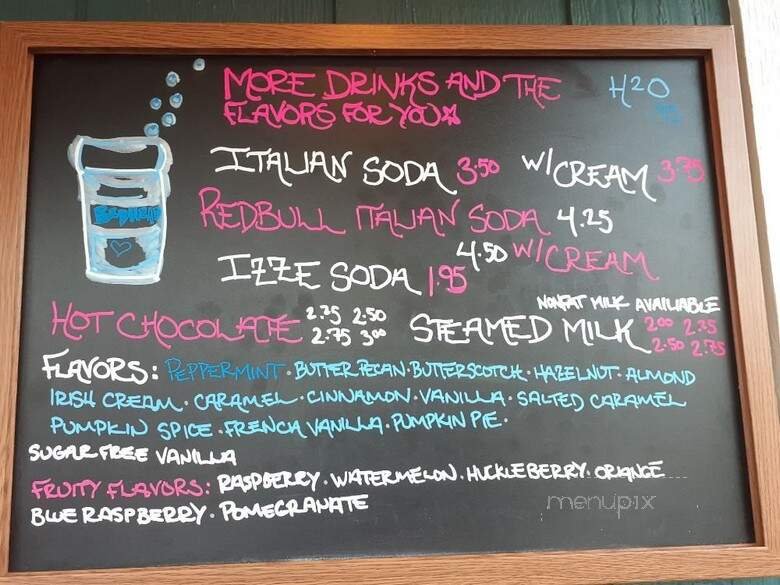 MORE DRINKS AND THE
FLAVORS FOR YOU
H2O
ITALIAN SODA 3.50 W/CREAM 3.75
REDBULL ITALIAN SODA 4.25
4.50 W/CREAM
IZZE SODA 1.95
NONFAT MILK AVAILIABLE
HOT CHOCOLATE 2.25 2.50 2.75 3.00
STEAMED MILK 2.00 2.25 2.50 2.75
FLAVORS: PEPPERMINT · BUTTER PECAN · BUTTERSCOTCH · HAZELNUT · ALMOND
IRISH CREAM · CARAMEL · CINNAMON · VANILLA · SALTED CARAMEL
PUMPKIN SPICE · FRENCH VANILLA · PUMPKIN PIE ·
SUGAR FREE VANILLA
FRUITY FLAVORS: RASPBERRY · WATERMELON · HUCKLEBERRY · ORANGE
BLUE RASPBERRY · POMEGRANATE
menupix